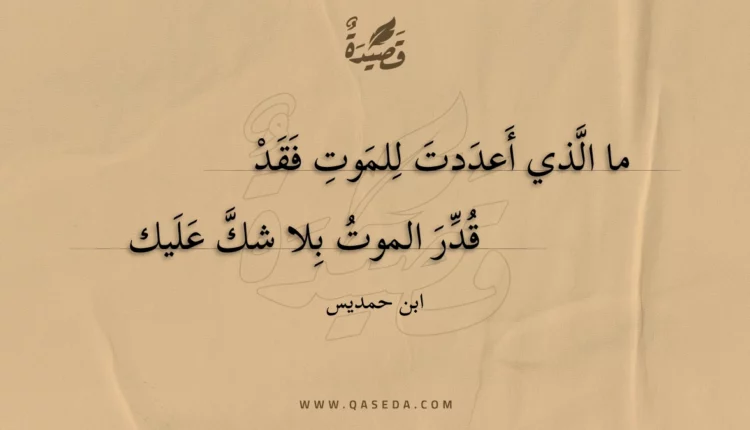 قَصِيدَةٌ
ما الَّذي أَعدَدتَ لِلمَوتِ فَقَدْ
قُدِّرَ الموتُ بِلا شكَّ عَلَيك
ابن حمديس
WWW.QASEDA.COM